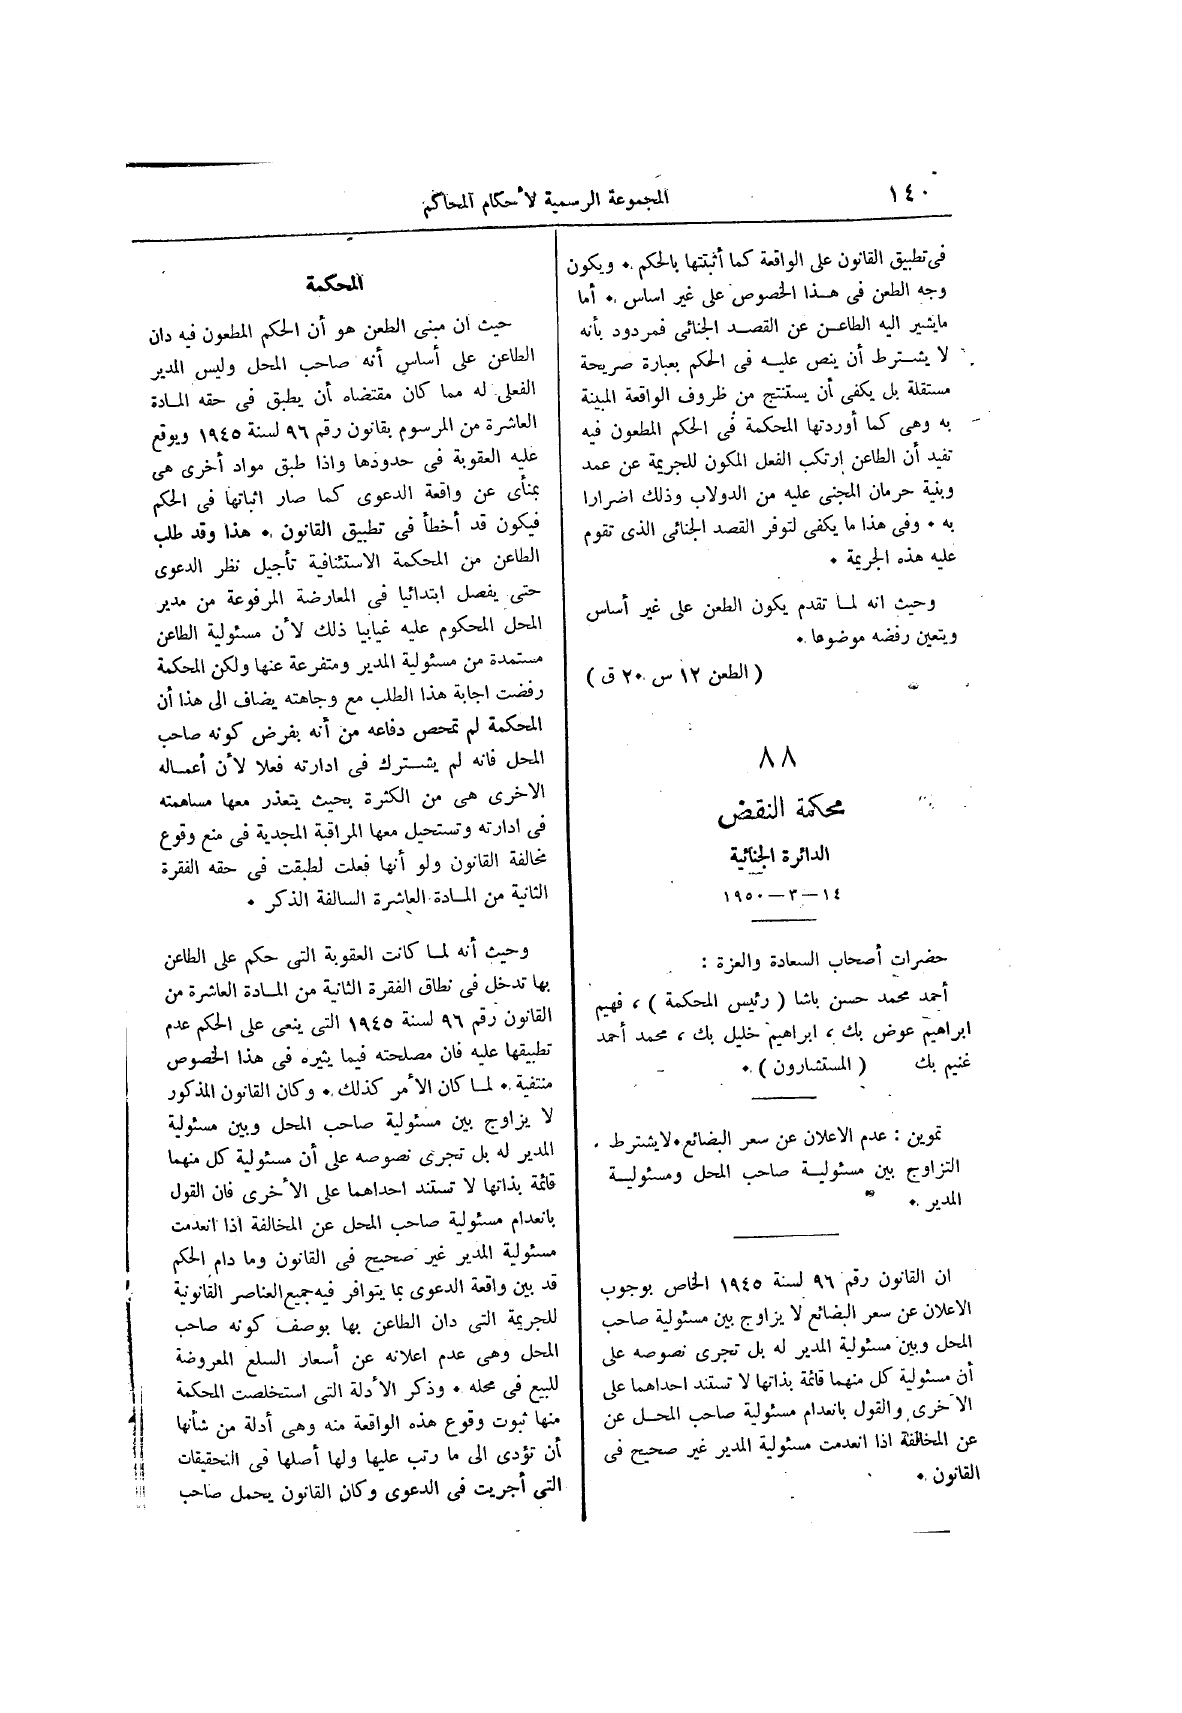 ١٤٠
المجموعة الرسمية لأحكام المحاكم
فى تطبيق القانون على الواقعة كما أثبتتها بالحكم . ويكون
وجه الطعن فى هـذا الخصوص على غير اساس . أما
مايشير اليه الطاعـن عن القصـد الجنائى فمردود بأنه
لا يشـترط أن ينص عليـه فى الحكم بعبارة صريحة
مستقلة بل يكفى أن يستنتج من ظروف الواقعة المبينة
به وهى كما أوردتها المحكمة فى الحكم المطعون فيه
تفيد أن الطاعن إرتكب الفعل المكون للجريمة عن عمد
وبنية حرمان المجنى عليه من الدولاب وذلك اضرارا
به . وفى هذا ما يكفى لتوفر القصد الجنائى الذى تقوم
عليه هذه الجريمة .
وحيث انه لمـا تقدم يكون الطعن على غير أساس
ويتعين رفضه موضوعا .
( الطعن ١٢ س ٢٠ ق )
٨٨
محكمة النقض
الدائرة الجنائية
١٤ – ٣ – ١٩٥٠
حضرات أصحاب السعادة والعزة :
أحمد محمد حسن باشا ( رئيس المحكمة ) ، فهيم
ابراهيم عوض بك ، ابراهيم خليل بك ، محمد أحمد
غنيم بك ( المستشارون ) .
تموين : عدم الاعلان عن سعر البضائع . لايشترط
التزاوج بين مسئوليـة صاحب المحل ومسئوليـة
المدير .
ان القانون رقم ٩٦ لسنة ١٩٤٥ الخاص بوجوب
الاعلان عن سعر البضائع لا يزاوج بين مسئولية صاحب
المحل وبين مسئولية المدير له بل تجرى نصوصه على
أن مسئولية كل منهما قائمة بذاتها لا تستند احداهما على
الأخرى والقول بانعدام مسئولية صاحب المحـل عن
عن المخالفة اذا انعدمت مسئولية المدير غير صحيح فى
القانون .
المحكمة
حيث ان مبنى الطعن هو أن الحكم المطعون فيه دان
الطاعن على أساس أنه صاحب المحل وليس المدير
الفعلى له مما كان مقتضاه أن يطبق فى حقه المـادة
العاشرة من المرسوم بقانون رقم ٩٦ لسنة ١٩٤٥ ويوقع
عليه العقوبة فى حدودها واذا طبق مواد أخرى هى
بمنأى عن واقعة الدعوى كما صار اثباتها فى الحكم
فيكون قد أخطأ فى تطبيق القانون . هذا وقد طلب
الطاعن من المحكمة الاستئنافية تأجيل نظر الدعوى
حتى يفصل ابتدائيا فى المعارضة المرفوعة من مدير
المحل المحكوم عليه غيابيا ذلك لأن مسئولية الطاعن
مستمدة من مسئولية المدير ومتفرعة عنها ولكن المحكمة
رفضت اجابة هذا الطلب مع وجاهته يضاف الى هذا أن
المحكمة لم تمحص دفاعه من أنه بفرض كونه صاحب
المحل فانه لم يشـترك فى ادارته فعلا لأن أعمـاله
الاخرى هى من الكثرة بحيث يتعذر معها مساهمته
فى ادارته وتستحيل معها المراقبة المجدية فى منع وقوع
مخالفة القانون ولو أنها فعلت لطبقت فى حقه الفقرة
الثانية من المـادة العاشرة السالفة الذكر .
وحيث أنه لمـا كانت العقوبة التى حكم على الطاعن
بها تدخل فى نطاق الفقرة الثانية من المـادة العاشرة من
القانون رقم ٩٦ لسنة ١٩٤٥ التى ينعى على الحكم عدم
تطبيقها عليه فان مصلحته فيما يثيره فى هذا الخصوص
منتفية . لمـا كان الأمر كذلك . وكان القانون المذكور
لا يزاوج بين مسئولية صاحب المحل وبين مسئولية
المدير له بل تجرى نصوصه على أن مسئولية كل منهما
قائمة بذاتها لا تستند احداهما على الأخرى فان القول
بانعدام مسئولية صاحب المحل عن المخالفة اذا انعدمت
مسئولية المدير غير صحيح فى القانون وما دام الحكم
قد بين واقعة الدعوى بما يتوافر فيه جميع العناصر القانونية
للجريمة التى دان الطاعن بها بوصف كونه صاحب
المحل وهى عدم اعلانه عن أسعار السلع المعروضة
للبيع فى محله . وذكر الأدلة التى استخلصت المحكمة
منها ثبوت وقوع هذه الواقعة منه وهى أدلة من شأنها
أن تؤدى الى ما رتب عليها ولها أصلها فى التحقيقات
التى أجريت فى الدعوى وكان القانون يحمل صاحب